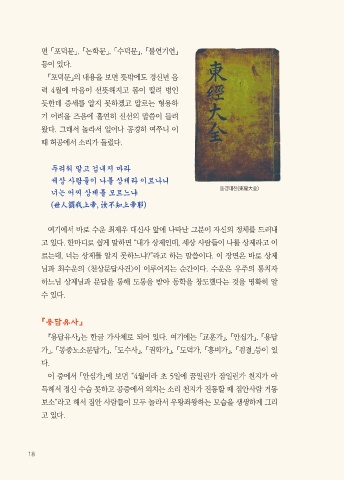 면 「포덕문」, 「논학문」, 「수덕문」, 「불연기연」
등이 있다.
「포덕문」의 내용을 보면 뜻밖에도 경신년 음
력 4월에 마음이 선뜻해지고 몸이 떨려 병인
듯한데 증세를 알지 못하겠고 말로는 형용하
기 어려울 즈음에 홀연히 신선의 말씀이 들려
왔다. 그래서 놀라서 일어나 공경히 여쭈니 이
때 허공에서 소리가 들렸다.
東經大全
동경대전(東經大全)
두려워 말고 겁내지 마라
세상 사람들이 나를 상제라 이르나니
너는 어찌 상제를 모르느냐
(世人謂我上帝, 汝不知上帝耶)
여기에서 바로 수운 최제우 대신사 앞에 나타난 그분이 자신의 정체를 드러내
고 있다. 한마디로 쉽게 말하면 "내가 상제인데, 세상 사람들이 나를 상제라고 이
르는데, 너는 상제를 알지 못하느냐?"라고 하는 말씀이다. 이 장면은 바로 상제
님과 최수운의 〈천상문답사건〉이 이루어지는 순간이다. 수운은 우주의 통치자
하느님 상제님과 문답을 통해 도통을 받아 동학을 창도했다는 것을 명확히 알
수 있다.
『용담유사』
『용담유사』는 한글 가사체로 되어 있다. 여기에는 「교훈가」, 「안심가」, 「용담
가」, 「몽중노소문답가」, 「도수사」, 「권학가」, 「도덕가, 「흥비가」, 「검결」등이 있
다.
이 중에서 「안심가」에 보면 "4월이라 초 5일에 꿈일런가 잠일런가 천지가 아
득해서 정신 수습 못하고 공중에서 외치는 소리 천지가 진동할 때 집안사람 거동
보소"라고 해서 집안 사람들이 모두 놀라서 우왕좌왕하는 모습을 생생하게 그리
고 있다.
18